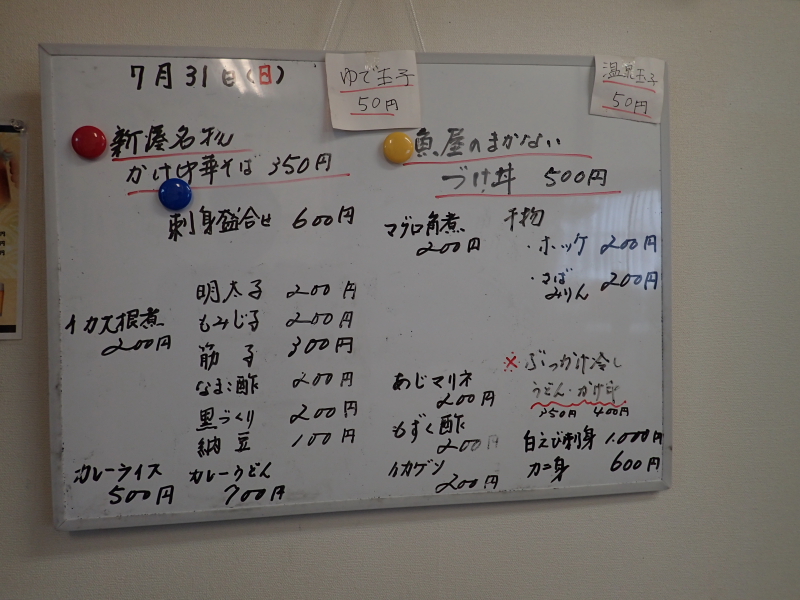 7月31日(日)
ゆで玉子
50円
温泉玉子
50円
新湊名物
かけ中華そば 350円
刺身盛合せ 600円
イカ大根煮
200円
明太子 200円
もみじ子 200円
筋子 300円
なまこ酢 200円
黒づくり 200円
納豆 100円
カレーライス
500円
カレーうどん
700円
魚屋のまかない
づけ丼 500円
マグロ角煮
200円
干物
・ホッケ 200円
・さば
みりん 200円
あじマリネ
200円
もずく酢
200円
イカゲソ
200円
×ぶっかけ冷し
うどん・かけ中
350円 400円
白えび刺身 1.000円
カニ身 600円